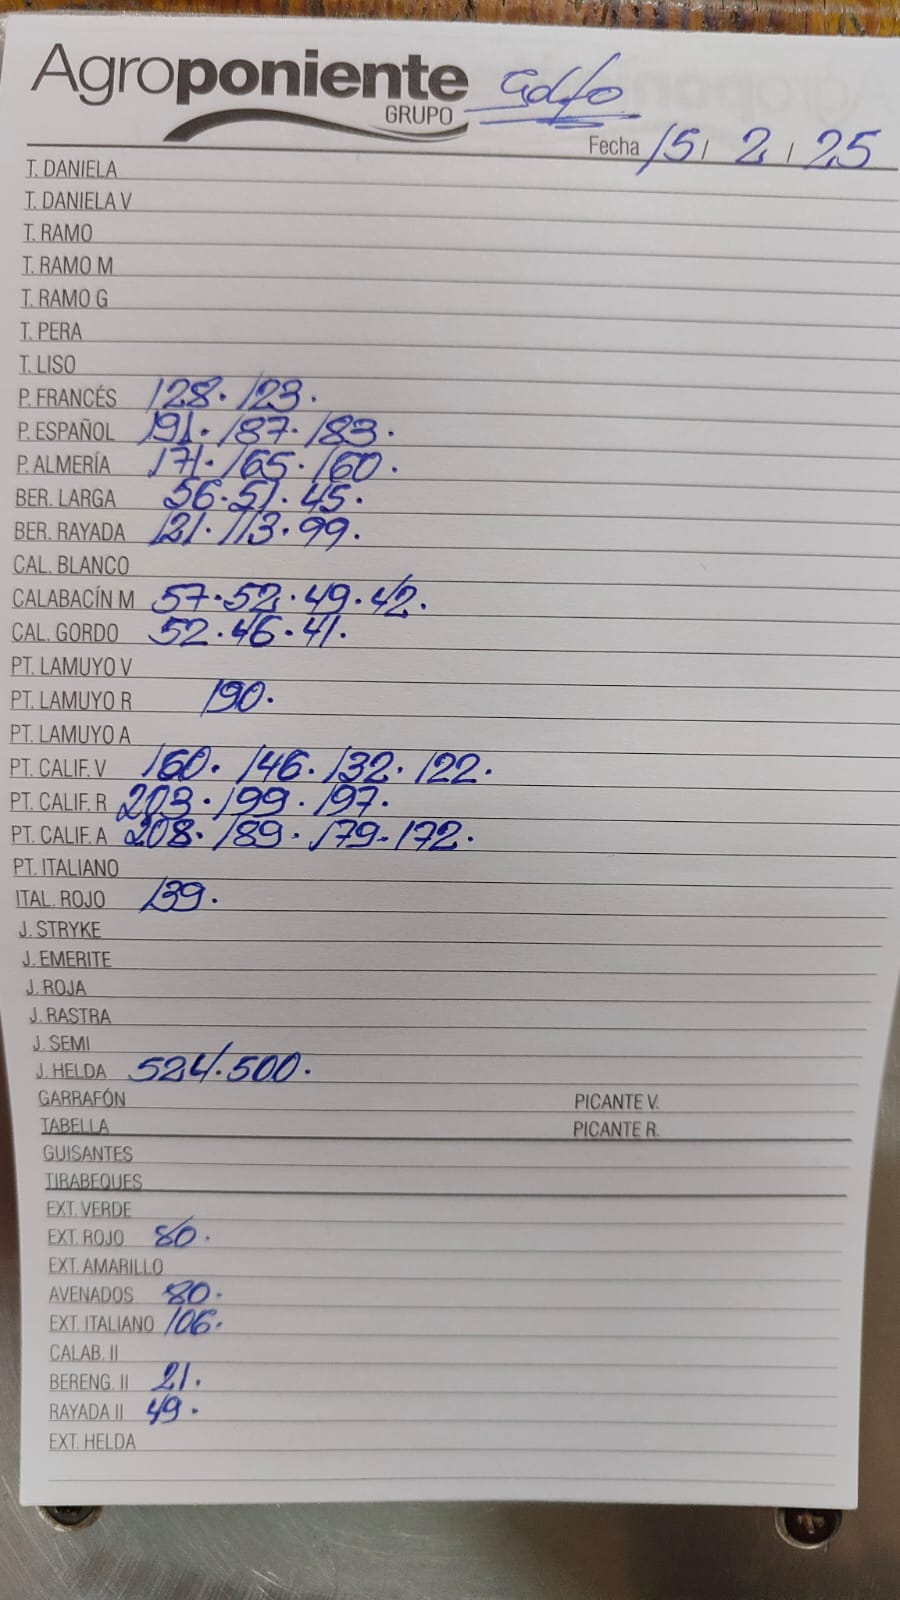 Agroponiente
GRUPO
Golfo
Fecha 15 / 2 / 25
T. DANIELA
T. DANIELA V
T. RAMO
T. RAMO M
T. RAMO G
T. PERA
T. LISO
P. FRANCÉS 128. 123.
P. ESPAÑOL 191. 187. 183.
P. ALMERÍA 171. 165. 160.
BER. LARGA 56. 51. 45.
BER. RAYADA 121. 113. 99.
CAL. BLANCO
CALABACÍN M 57. 52. 49. 42.
CAL. GORDO 52. 46. 41.
PT. LAMUYO V
PT. LAMUYO R 190.
PT. LAMUYO A
PT. CALIF. V 160. 146. 132. 122.
PT. CALIF. R 203. 199. 197.
PT. CALIF. A 208. 189. 179- 172.
PT. ITALIANO
ITAL. ROJO 139.
J. STRYKE
J. EMERITE
J. ROJA
J. RASTRA
J. SEMI
J. HELDA 524. 500.
GARRAFÓN PICANTE V.
TABELLA PICANTE R.
GUISANTES
TIRABEQUES
EXT. VERDE
EXT. ROJO 80.
EXT. AMARILLO
AVENADOS 80.
EXT. ITALIANO 106.
CALAB. II
BERENG. II 21.
RAYADA II 49.
EXT. HELDA